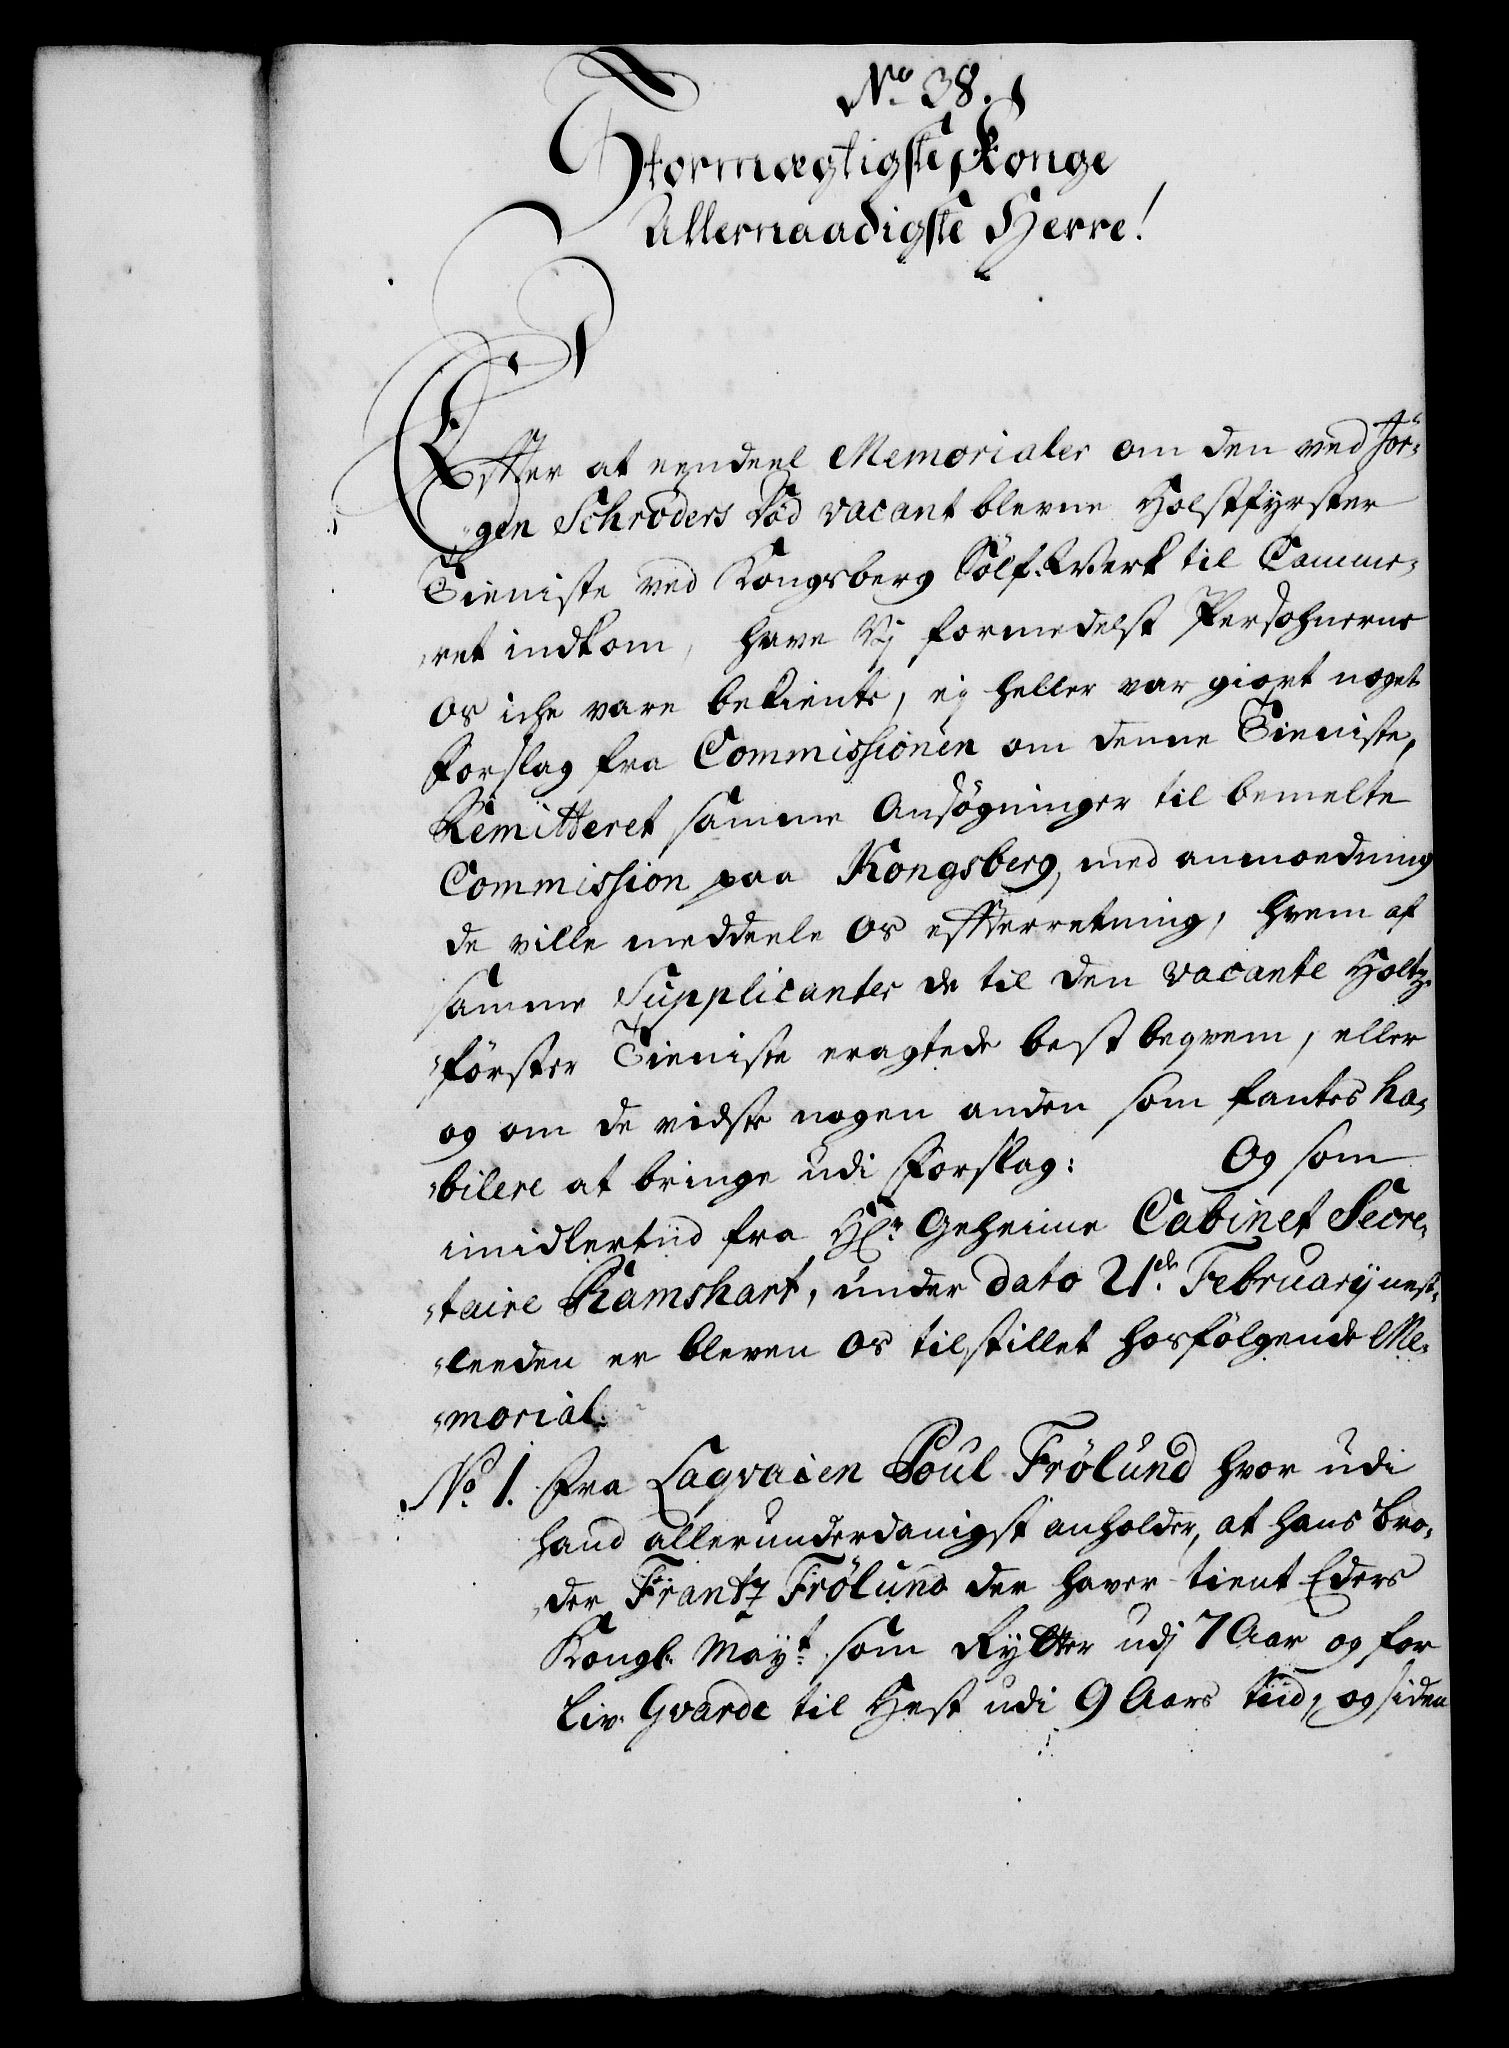 No 38.
Stormægtigste Konge
Allernaadigste Herre!
Effter at eendeel Memorialer om den ved Jör-
gen Schröders Död vacant blevne Holtzfyrster
Tieniste ved Kongsberg Sölf-Werk til Camme-
ret indkom, have Vj formedelst Persohnerne
os iche vare bekiente, ej heller var giort noget
Forslag fra Commissionen om denne Tieniste,
Remitteret samme Ansögninger til bemelte
Commission paa Kongsberg, med anmoedning
de ville meddeele os effterretning, hvem af
samme Supplicanter de til den vacante Holtz-
förster Tieniste eragtede best beqvem, eller
og om de vidste nogen anden som fantes ha-
bilere at bringe udi Forslag: Og som
imidlertiid fra Hr. Geheime Cabinet Secre-
taire Ramshart, under dato 21de Februarij nest-
leeden er bleven os tilstillet hosfölgende Me-
morial.
No 1. Fra Laqvaien Poul Frölund hvor udi
hand allerunderdanigst anholder, at hans Bro-
der Frantz Frölund der haver tient Eders
Kongl. Mayt. som Rytter udj 7 Aar og for
Liv-Gvarde til Hest udi 9 Aars tiid, og siden